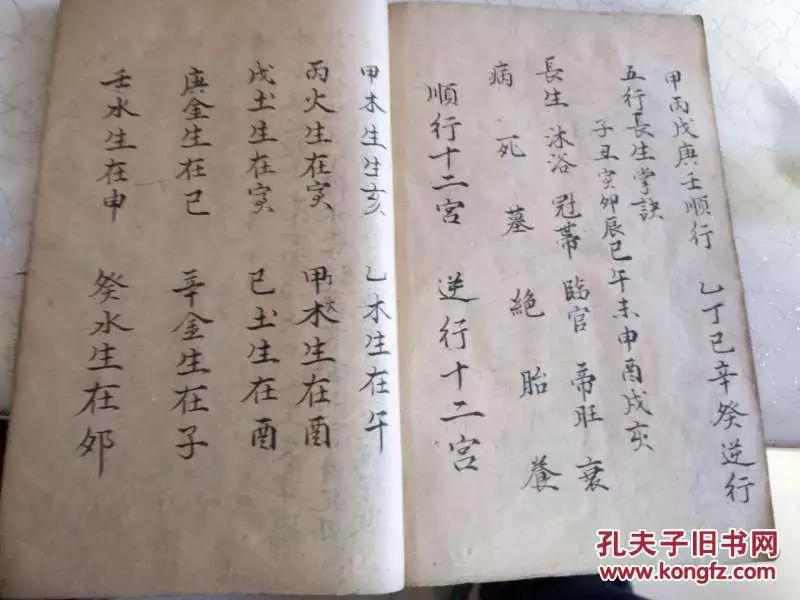 甲丙戊庚壬順行 乙丁己辛癸逆行
五行長生掌訣
子丑寅卯辰巳午未申酉戌亥
長生 沐浴 冠帶 臨官 帝旺 衰
病 死 墓 絕 胎 養
順行十二宮 逆行十二宮
甲木生生亥 乙木生在午
丙火生在寅 甲木生在酉
戊土生在寅 已土生在酉
庚金生在巳 辛金生在子
壬水生在申 癸水生在夘
孔夫子旧书网
www.kongfz.com